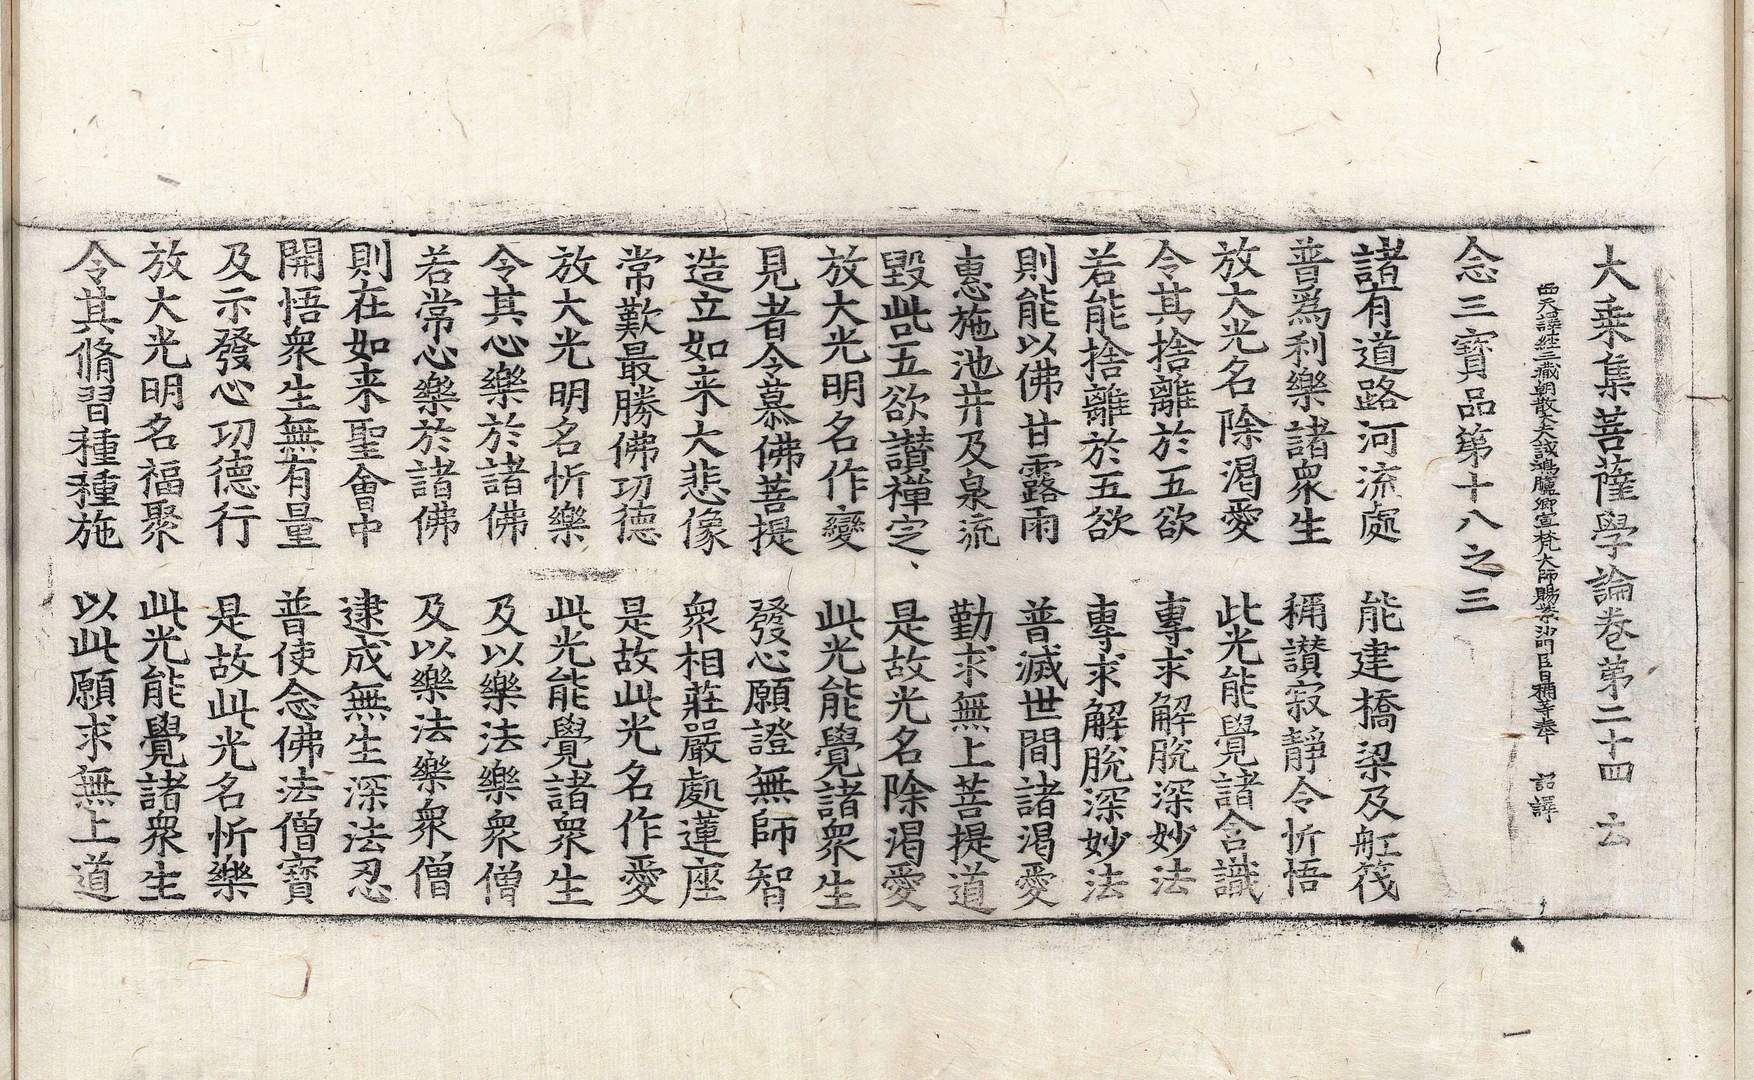 大乘集菩薩學論卷第二十四 云
西天譯經三藏朝散大夫試鴻臚卿宣梵大師賜紫沙門臣日稱等奉 詔譯
念三寶品第十八之三
諸有道路河流處 能建橋梁及舡筏
普爲利樂諸衆生 稱讃寂靜令忻悟
放大光名除渴愛 此光能覺諸含識
令其捨離於五欲 專求解脫深妙法
若能捨離於五欲 專求解脫深妙法
則能以佛甘露雨 普滅世間諸渴愛
惠施池井及泉流 勤求無上菩提道
毀呰五欲讃禪定 是故光名除渴愛
放大光明名作變 此光能覺諸衆生
見者令慕佛菩提 發心願證無師智
造立如来大悲像 衆相莊嚴處蓮座
常歎最勝佛功德 是故此光名作愛
放大光明名忻樂 此光能覺諸衆生
令其心樂於諸佛 及以樂法樂衆僧
若常心樂於諸佛 及以樂法樂衆僧
則在如来聖會中 逮成無生深法忍
開悟衆生無有量 普使念佛法僧寶
及示發心功德行 是故此光名忻樂
放大光明名福聚 此光能覺諸衆生
令其脩習種種施 以此願求無上道